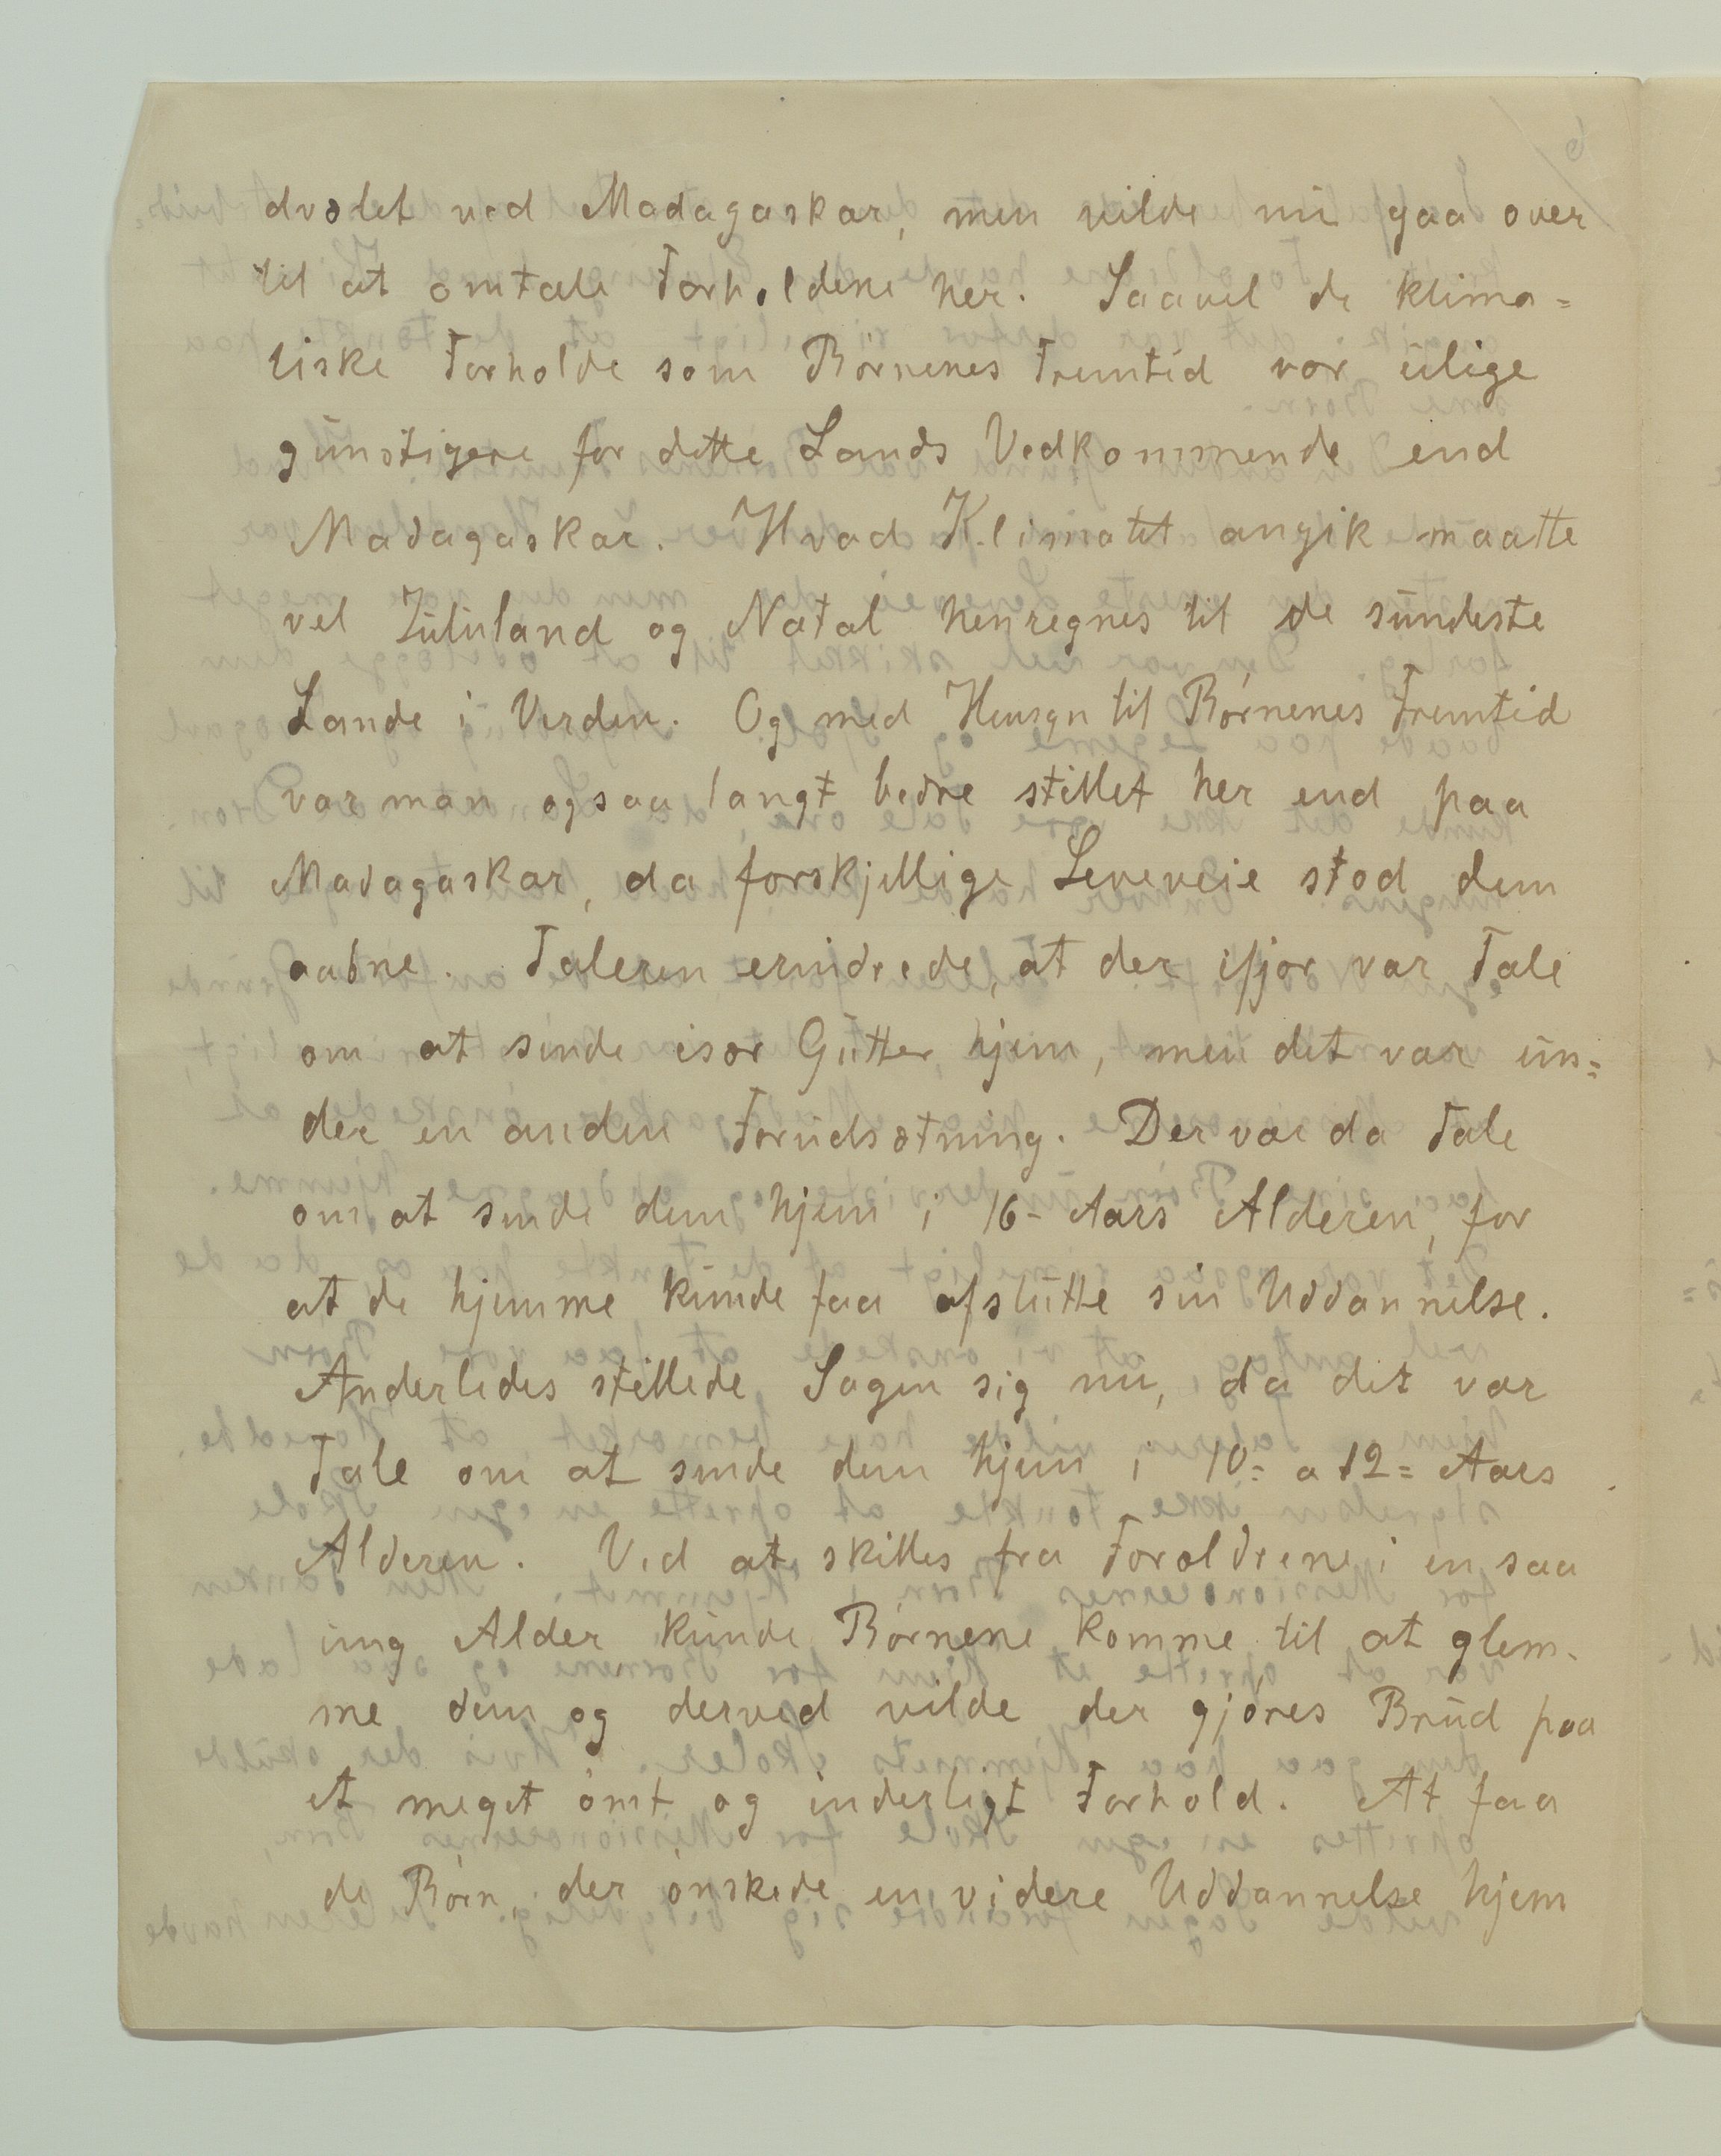 dvælet ved Madagaskar, men vilde nu gaa over
til at omtale Forholdene her. Saavel de klima=
tiske Forholde som Börnenes Fremtid var ulige
gunstigere for dette Lands Vedkommende end
Madagaskar. Hvad Klimatet angik maatte
vel Zululand og Natal henregnes til de sundeste
Lande i Verden. Og med Hensyn til Börnenes Fremtid
var man ogsaa langt bedre stillet her end paa
Madagaskar, da forskjellige Leveveie stod dem
aabne. Taleren erindrede, at der ifjor var Tale
om at sende især Gutter hjem, men det var un=
der en anden Forudsætning. Der var da Tale
om at sende dem hjem i 16- Aars Alderen, for
at de hjemme kunde faa afslutte sin Uddannelse.
Anderledes stillede Sagen sig nu, da det var
Tale om at sende dem hjem i 10= a 12= Aars
Alderen. Ved at skilles fra Forældrene i en saa
ung Alder kunde Börnene komme til at glem-
me dem og derved vilde der gjöres Brud paa
et meget ömt og inderligt Forhold. At faa
de Börn, der önskede en videre Uddannelse hjem